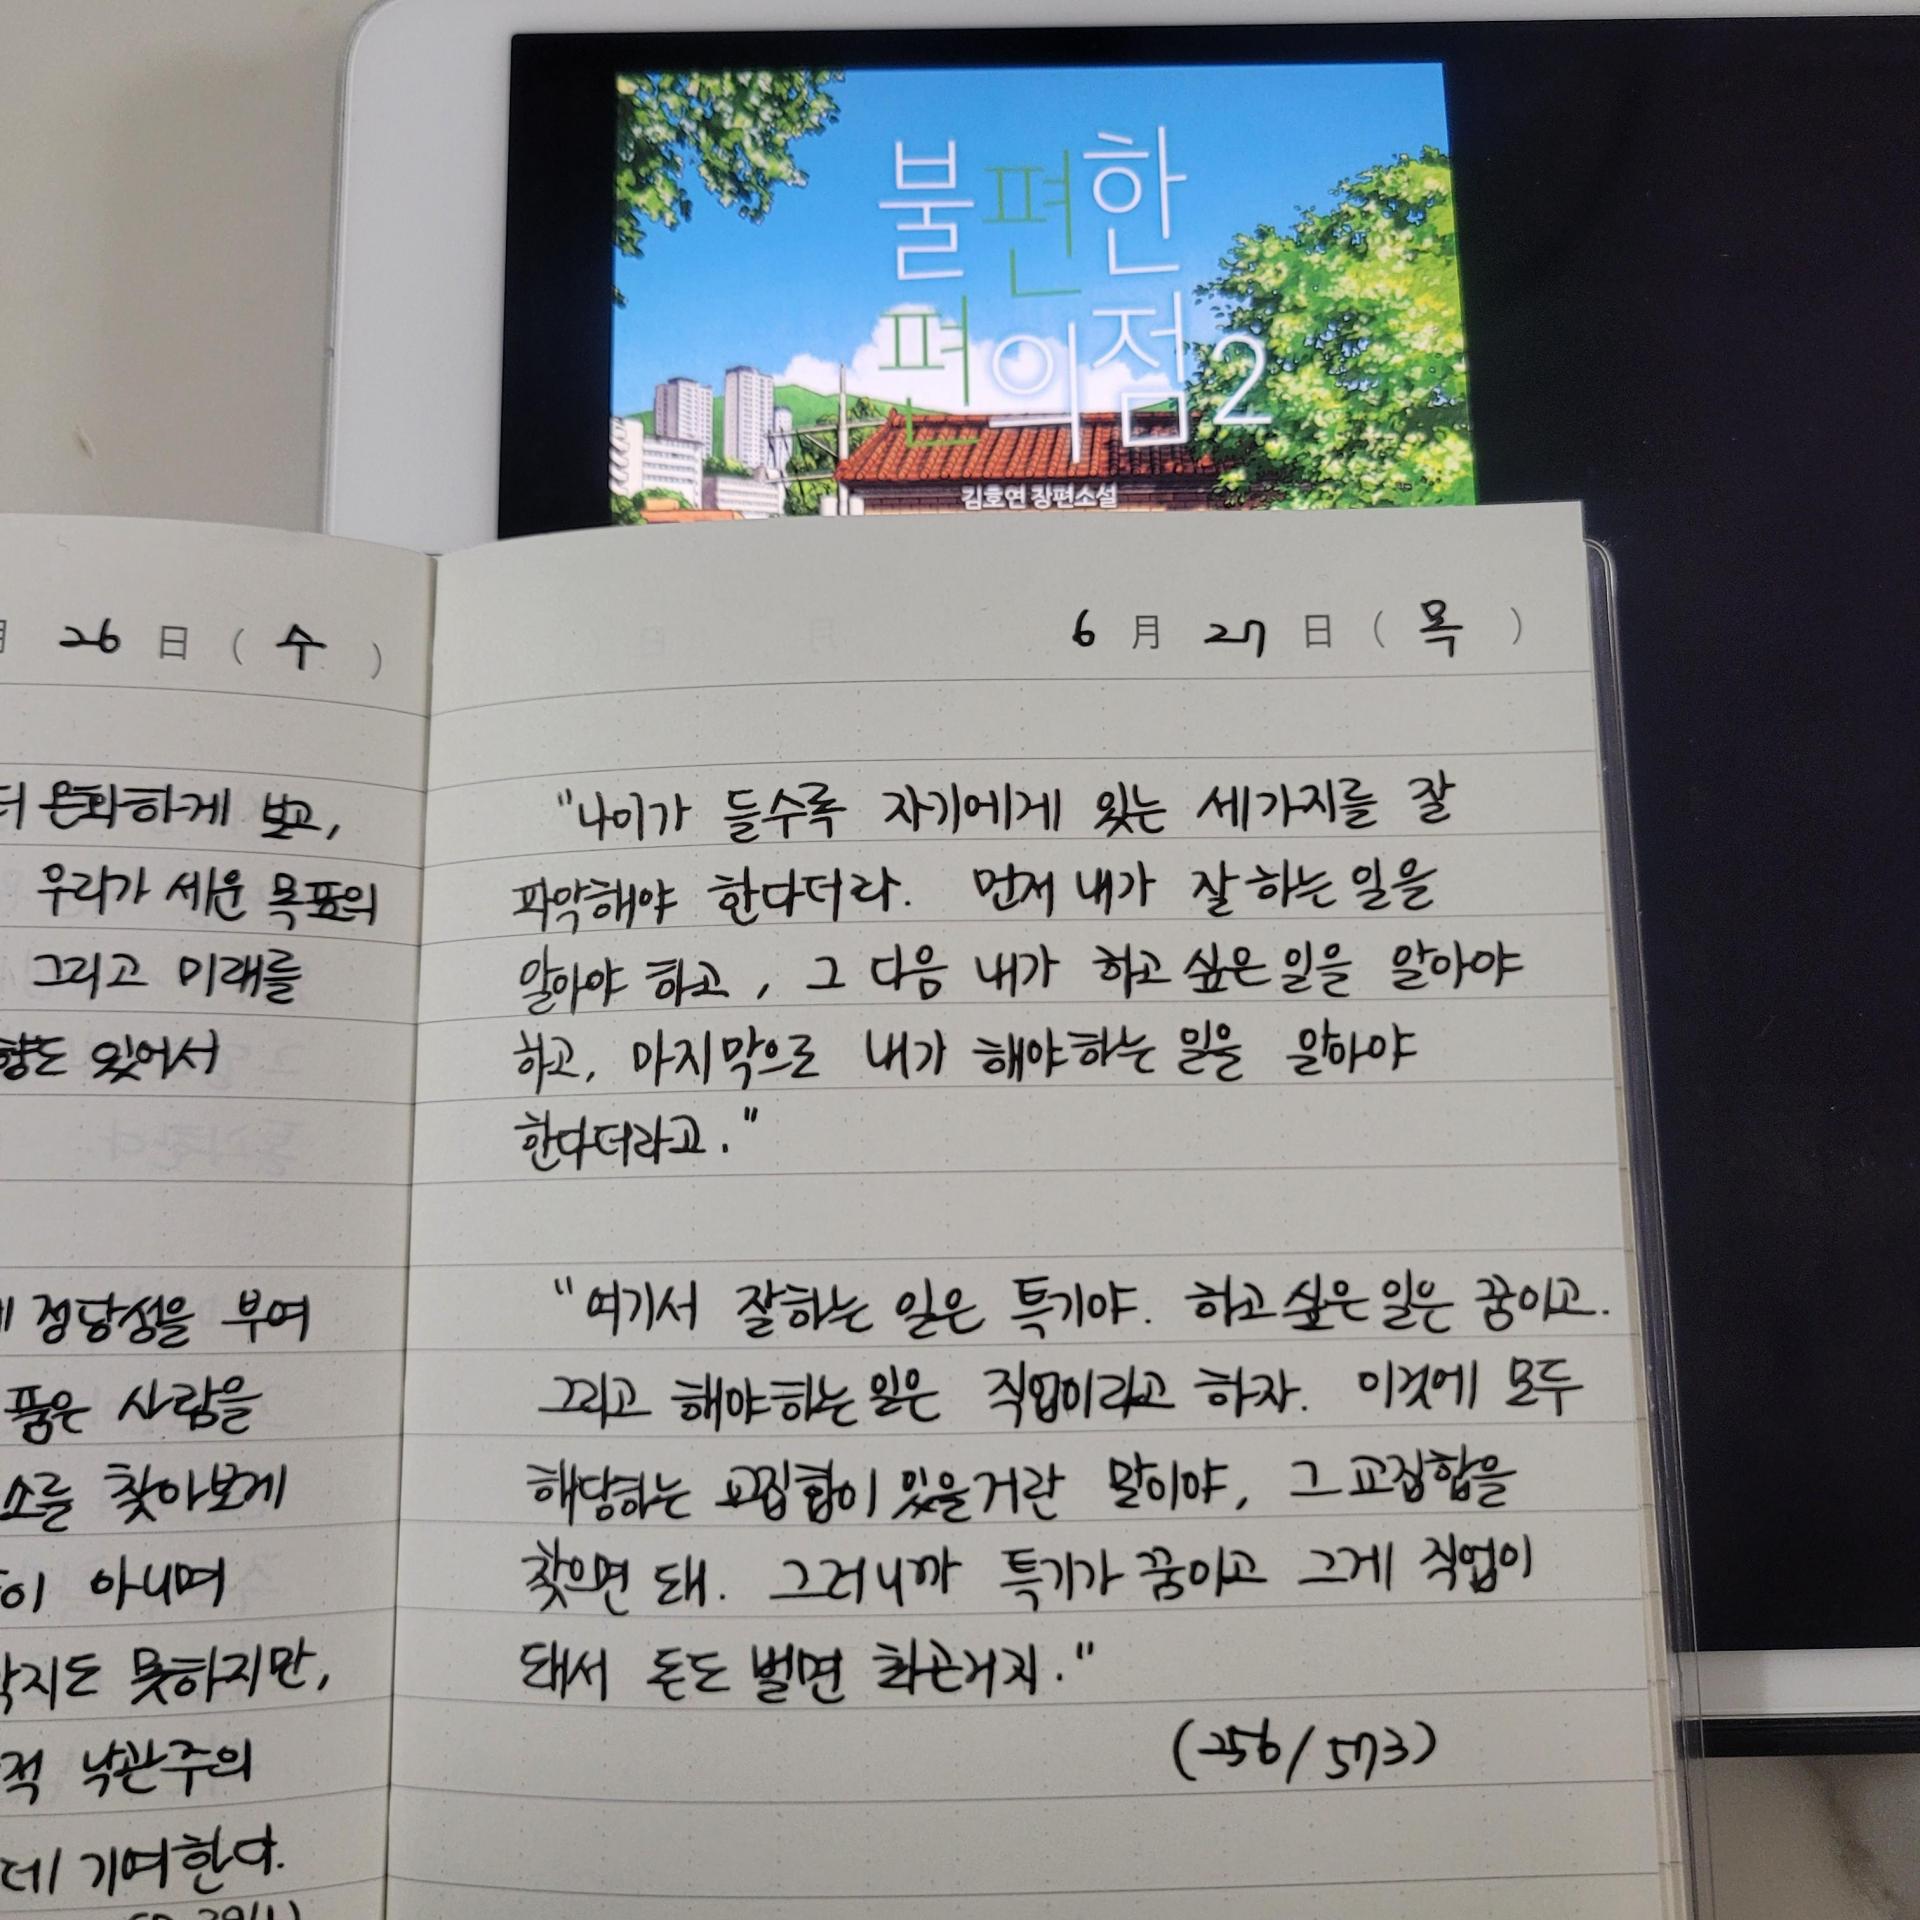 불편한
편의점2
김호연 장편소설
26 日 ( 수 )
온화하게 보고,
우리가 세운 목표의
그리고 미래를
있어서
정당성을 부여
품은 사람을
찾아보게
아니며
못하지만,
낙관주의
기여한다.
6 月 27 日 ( 목 )
"나이가 들수록 자기에게 있는 세가지를 잘
파악해야 한다더라. 먼저 내가 잘하는 일을
알아야 하고, 그 다음 내가 하고 싶은 일을 알아야
하고, 마지막으로 내가 해야하는 일을 알아야
한다더라고."
"여기서 잘하는 일은 특기야. 하고 싶은 일은 꿈이고.
그리고 해야하는 일은 직업이라고 하자. 이것에 모두
해당하는 교집합이 있을거란 말이야, 그 교집합을
찾으면 돼. 그러니까 특기가 꿈이고 그게 직업이
돼서 돈도 벌면 화근거지."
(256/573)